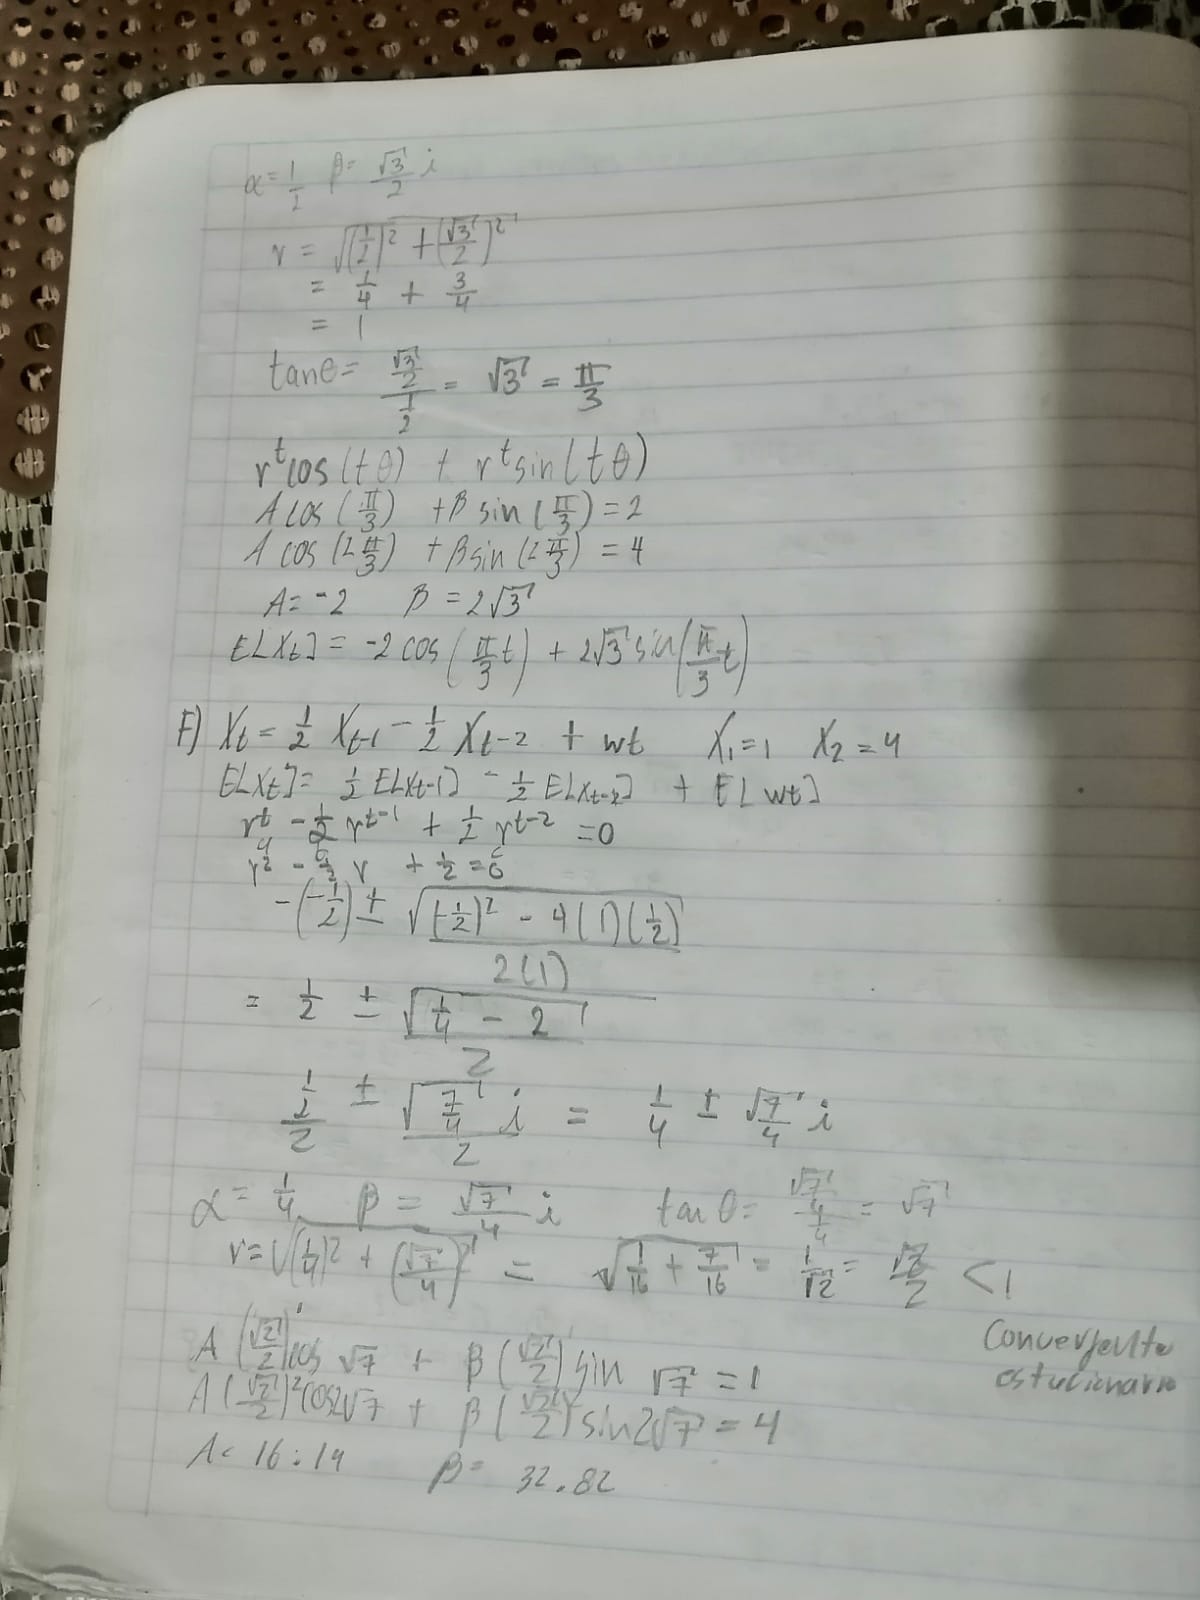 α = 1/2 β = √3/2 i
r = √((1/2)² + (√3/2)²)
= 1/4 + 3/4
= 1
tanθ = (√3/2)/(1/2) = √3 = π/3
r^t cos(tθ) + r^t sin(tθ)
A cos(π/3) + β sin(π/3) = 2
A cos(2π/3) + β sin(2π/3) = 4
A = -2 β = 2√3
E[Xt] = -2 cos(π/3 t) + 2√3 sin(π/3 t)
F) Xt = 1/2 Xt-1 - 1/2 Xt-2 + wt X1 = 1 X2 = 4
E[Xt] = 1/2 E[Xt-1] - 1/2 E[Xt-2] + E[wt]
r^t - 1/2 r^t-1 + 1/2 r^t-2 = 0
r² - 1/2 r + 1/2 = 0
-(-1/2) ± √((-1/2)² - 4(1)(1/2)) / 2(1)
= 1/2 ± √(1/4 - 2) / 2
(1/2)/2 ± √(7/4) i / 2 = 1/4 ± √7/4 i
α = 1/4 β = √7/4 i tan θ = (√7/4)/(1/4) = √7
r = √((1/4)² + (√7/4)²) = √(1/16 + 7/16) = 1/√2 = √2/2 < 1
Convergente
estacionario
A (√2/2)¹ cos √7 + β (√2/2) sin √7 = 1
A (√2/2)² cos2√7 + β (√2/2)² sin2√7 = 4
A = 16.14 β = 32.82